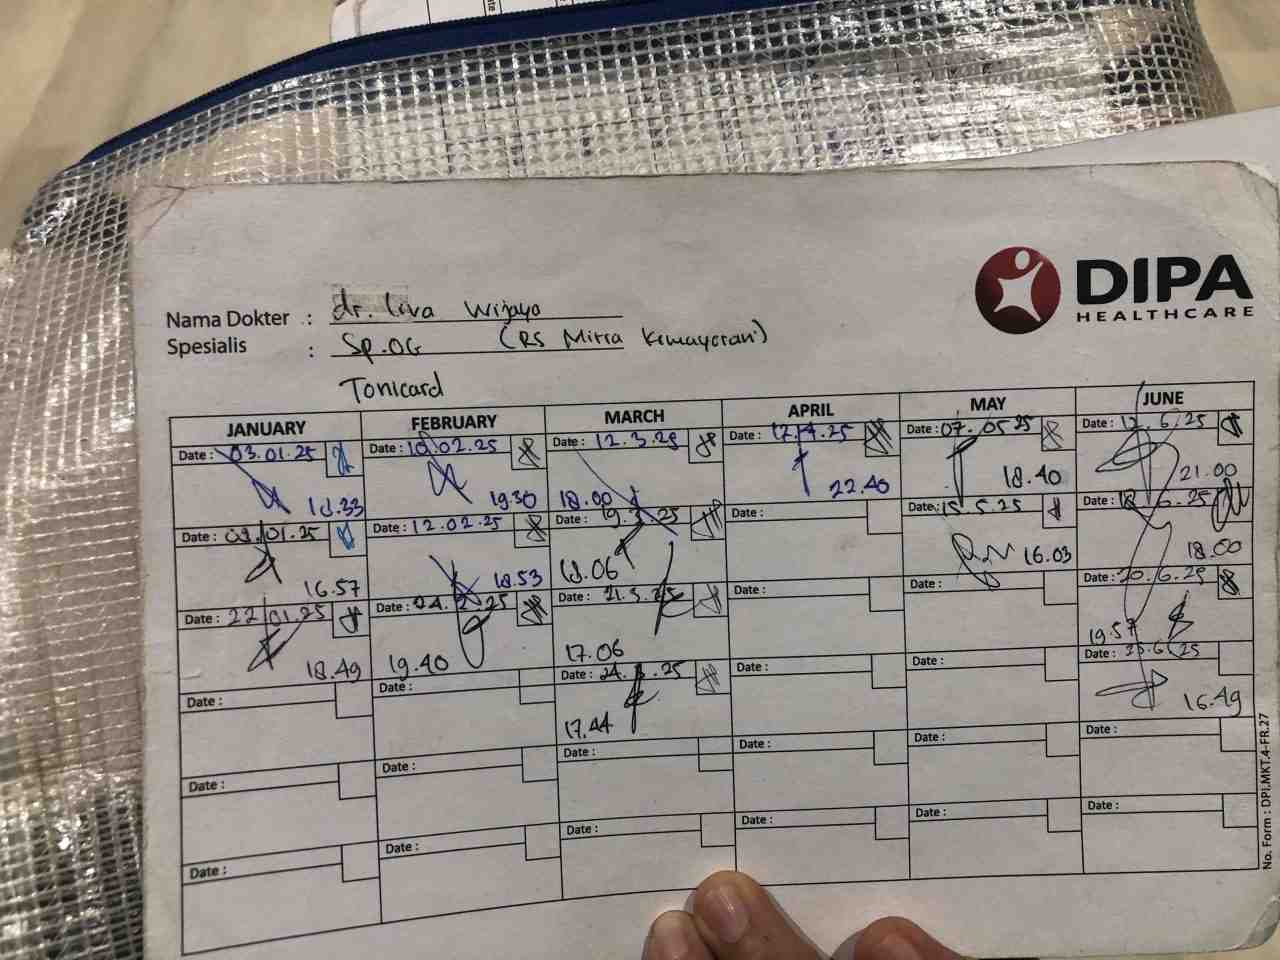 DIPA
HEALTHCARE
Nama Dokter : dr. Liva Wijaya
Spesialis : Sp.OG (RS Mitra Kemayoran)
Tonicard
JANUARY FEBRUARY MARCH APRIL MAY JUNE
Date : 03.01.25 Date : 10.02.25 Date : 12.3.25 Date : 17.4.25 Date : 07.05.25 Date : 12.6.25
18.33 19.30 18.00 22.40 18.40 21.00
Date : 09.01.25 Date : 12.02.25 Date : 19.3.25 Date : Date : 15.5.25 Date : 18.6.25
16.57 18.53 18.06 16.03 18.00
Date : 22.01.25 Date : 24.2.25 Date : 21.3.25 Date : Date : Date : 20.6.25
18.49 19.40 17.06 19.57
Date : Date : Date : 24.3.25 Date : Date : Date : 30.6.25
17.44 16.49
Date : Date : Date : Date : Date : Date :
Date : Date : Date : Date : Date : Date :
No. Form : DPI.MKT.4-FR.27